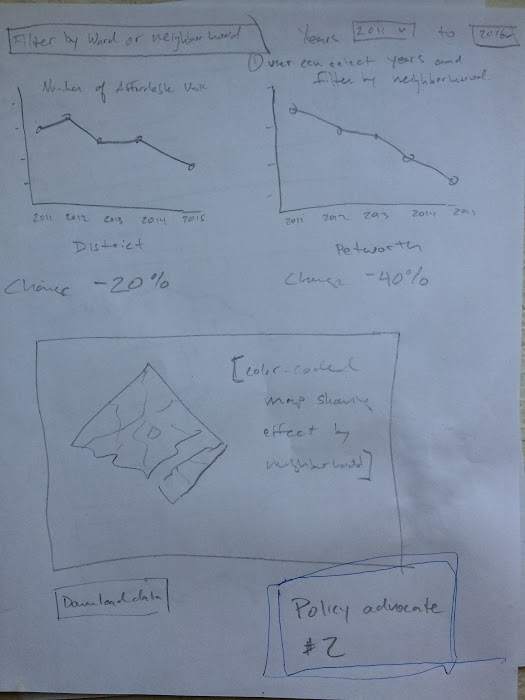 Filter by Ward or neighborhood
Years 2011 to 2016
① user can select years and
filter by neighborhood
Number of Affordable Unit
2011 2012 2013 2014 2015
District
Change -20%
2011 2012 2013 2014 2015
Petworth
Change -40%
[color-coded
map showing
effect by
neighborhood]
Download data
Policy advocate
#2